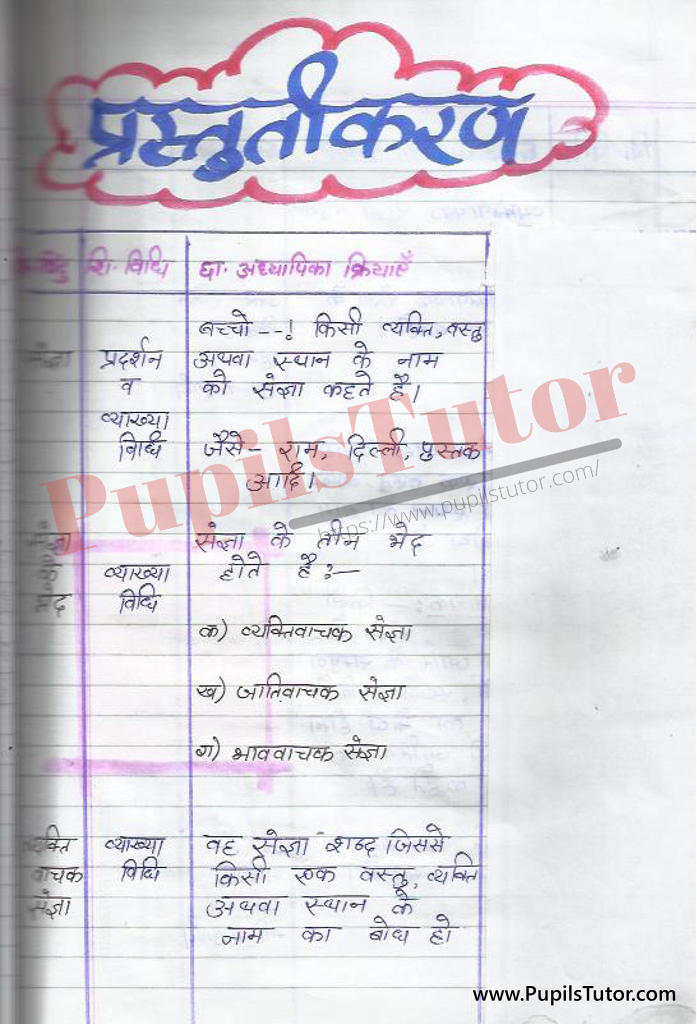 प्रस्तुतीकरण
बिंदु शि. विधि छा. अध्यापिका क्रियाएँ
बच्चो --! किसी व्यक्ति, वस्तु
संज्ञा प्रदर्शन अथवा स्थान के नाम
व को संज्ञा कहते है।
व्याख्या
विधि जैसे- राम, दिल्ली, पुस्तक
आदि।
PupilsTutor
https://www.pupilstutor.com/
संज्ञा के तीन भेद
व्याख्या होते है:-
भेद विधि
क) व्यक्तिवाचक संज्ञा
ख) जातिवाचक संज्ञा
ग) भाववाचक संज्ञा
व्यक्ति व्याख्या वह संज्ञा शब्द जिससे
वाचक विधि किसी एक वस्तु, व्यक्ति
संज्ञा अथवा स्थान के
नाम का बोध हो
www.PupilsTutor.com